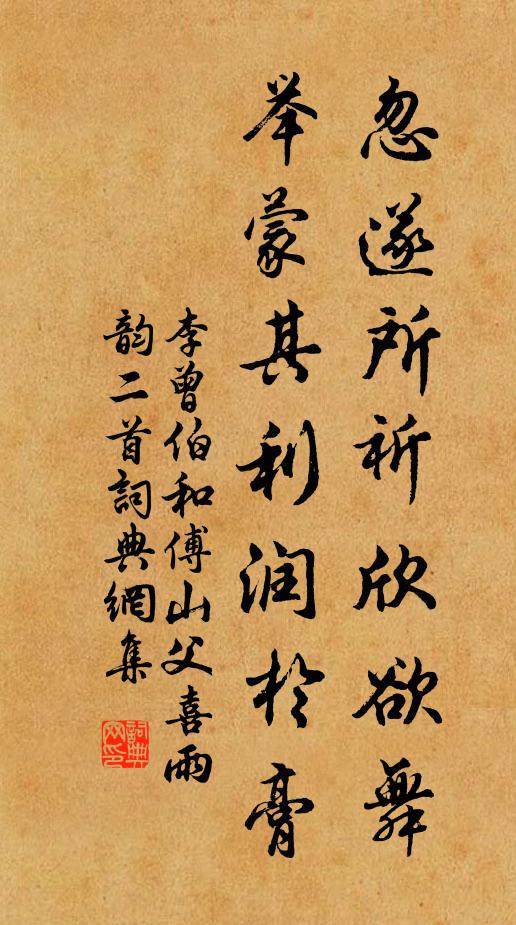 忽遂所祈欣欲舞
举蒙其利润於膏
李曾伯和傅山父喜雨
韵二首詞典網集
詞典网印